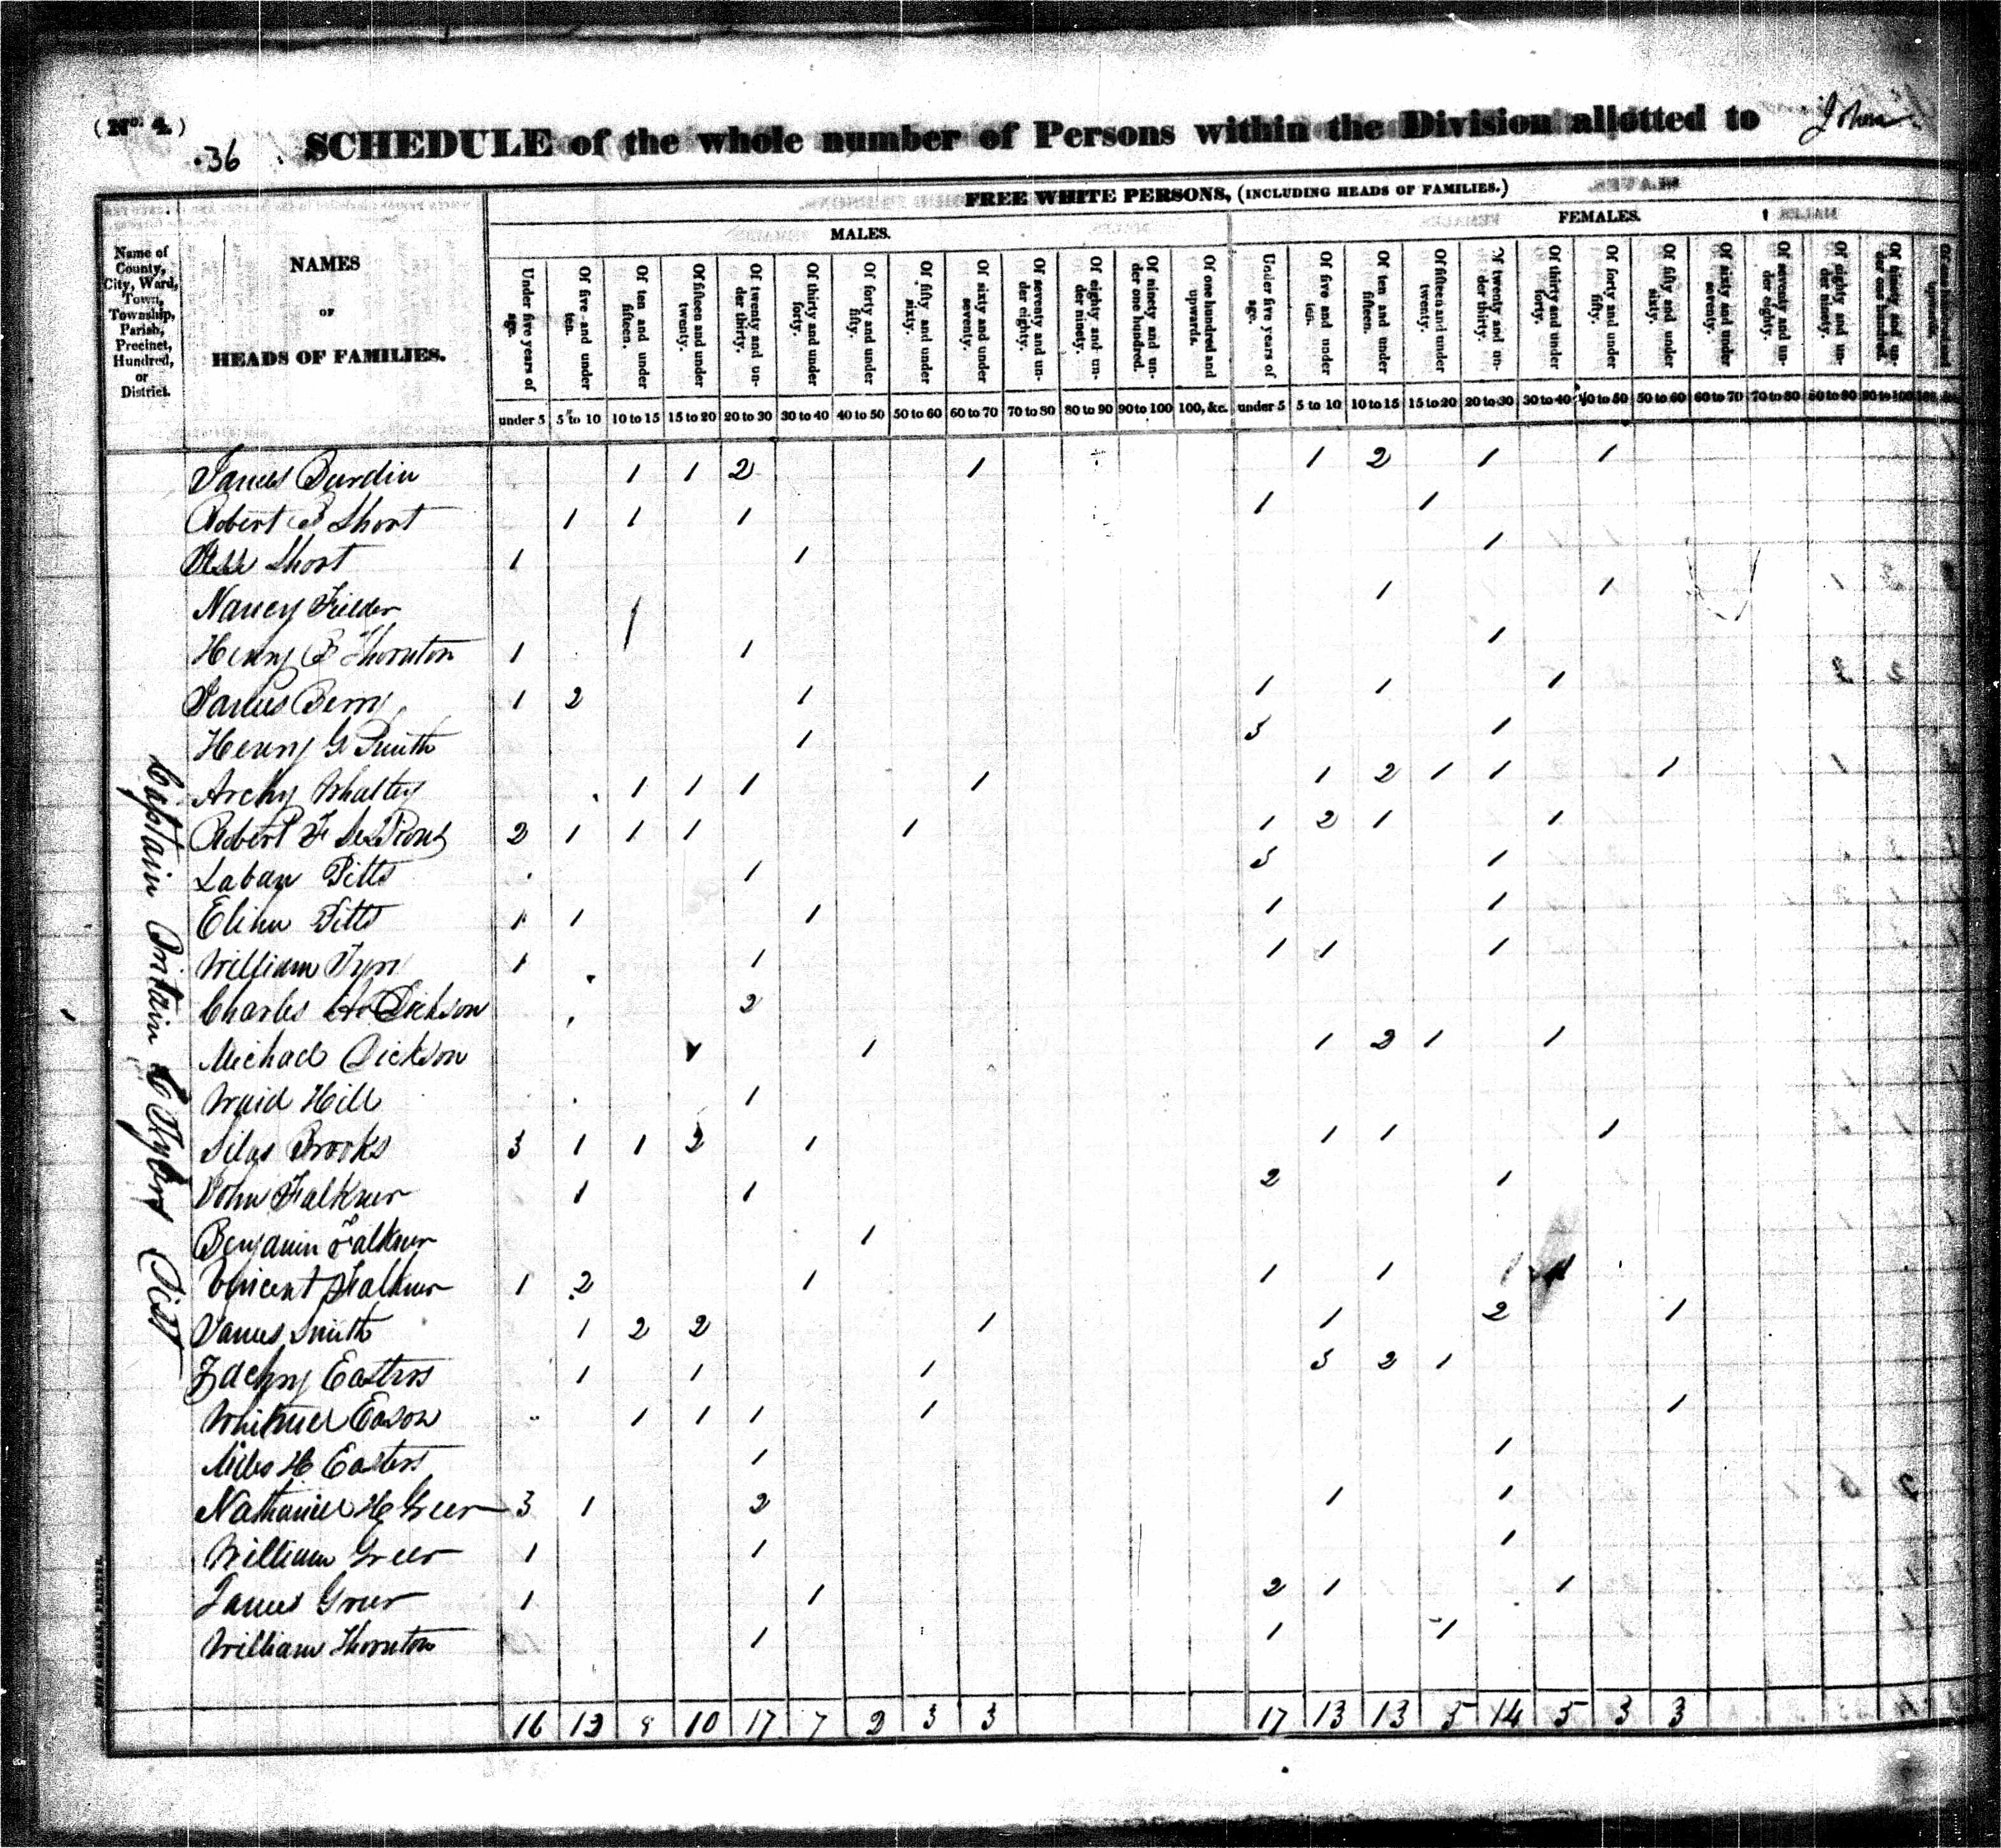 (No. 4.)
36
SCHEDULE of the whole number of Persons within the Division allotted to John
FREE WHITE PERSONS, (INCLUDING HEADS OF FAMILIES.)
MALES.
FEMALES.
Name of County, City, Ward, Town, Township, Parish, Precinct, Hundred, or District.
NAMES OF HEADS OF FAMILIES.
Under five years of age.
Of five and under ten.
Of ten and under fifteen.
Of fifteen and under twenty.
Of twenty and under thirty.
Of thirty and under forty.
Of forty and under fifty.
Of fifty and under sixty.
Of sixty and under seventy.
Of seventy and under eighty.
Of eighty and under ninety.
Of ninety and under one hundred.
Of one hundred and upwards.
Under five years of age.
Of five and under ten.
Of ten and under fifteen.
Of fifteen and under twenty.
Of twenty and under thirty.
Of thirty and under forty.
Of forty and under fifty.
Of fifty and under sixty.
Of sixty and under seventy.
Of seventy and under eighty.
Of eighty and under ninety.
Of ninety and under one hundred.
under 5 5 to 10 10 to 15 15 to 20 20 to 30 30 to 40 40 to 50 50 to 60 60 to 70 70 to 80 80 to 90 90 to 100 100, &c. under 5 5 to 10 10 to 15 15 to 20 20 to 30 30 to 40 40 to 50 50 to 60 60 to 70 70 to 80 80 to 90 90 to 100 100, &c.
Captain Dist
James Burdin 1 1 2 1 1 2 1 1
Robert B Short 1 1 1 1 1
Short 1 1 1
Nancy Fielder 1 1 1
Henry B Thornton 1 1 1
James Berry 1 2 1 1 1 1
Henry G Smith 1 3 1
Archy Whatley 1 1 1 1 1 2 1 1 1
Robert F 2 1 1 1 1 1 2 1 1
Laban Pitts 1 3 1
Elihu Pitts 1 1 1 1 1
William 1 1 1 1 1
Charles Dickson 2
Michael Dickson 1 1 2 1 1
Waid Hill 1
Silas Brooks 3 1 1 2 1 1 1 1
John Falkner 1 1 2 1
Benjamin Falkner 1
Vincent Falkner 1 2 1 1 1 1
James Smith 1 2 2 1 1 2 1
Eastros 1 1 1 3 2 1
Eason 1 1 1 1 1
Miles H 1 1
Nathaniel H Greer 3 1 2 1 1
William Greer 1 1 1
James Greer 1 1 2 1 1
William Thornton 1 1 1
16 13 9 10 17 7 2 3 3 17 13 13 5 14 5 3 3